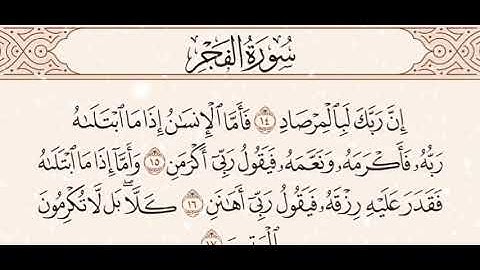 سُورَةُ الفَجۡرِ
إِنَّ رَبَّكَ لَبِٱلۡمِرۡصَادِ ١٤ فَأَمَّا ٱلۡإِنسَٰنُ إِذَا مَا ٱبۡتَلَىٰهُ
رَبُّهُۥ فَأَكۡرَمَهُۥ وَنَعَّمَهُۥ فَيَقُولُ رَبِّيٓ أَكۡرَمَنِ ١٥ وَأَمَّآ إِذَا مَا ٱبۡتَلَىٰهُ
فَقَدَرَ عَلَيۡهِ رِزۡقَهُۥ فَيَقُولُ رَبِّيٓ أَهَٰنَنِ ١٦ كَلَّاۖ بَل لَّا تُكۡرِمُونَ